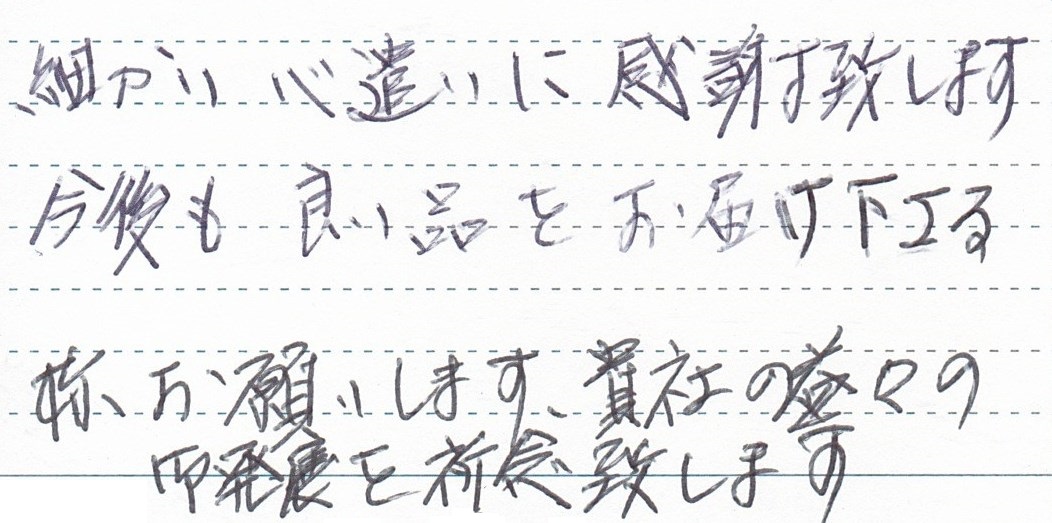 細かい心遣いに感謝す致します
今後も良い品をお届け下エる
様、お願いします、貴社の益々の
御発展を祈念致します